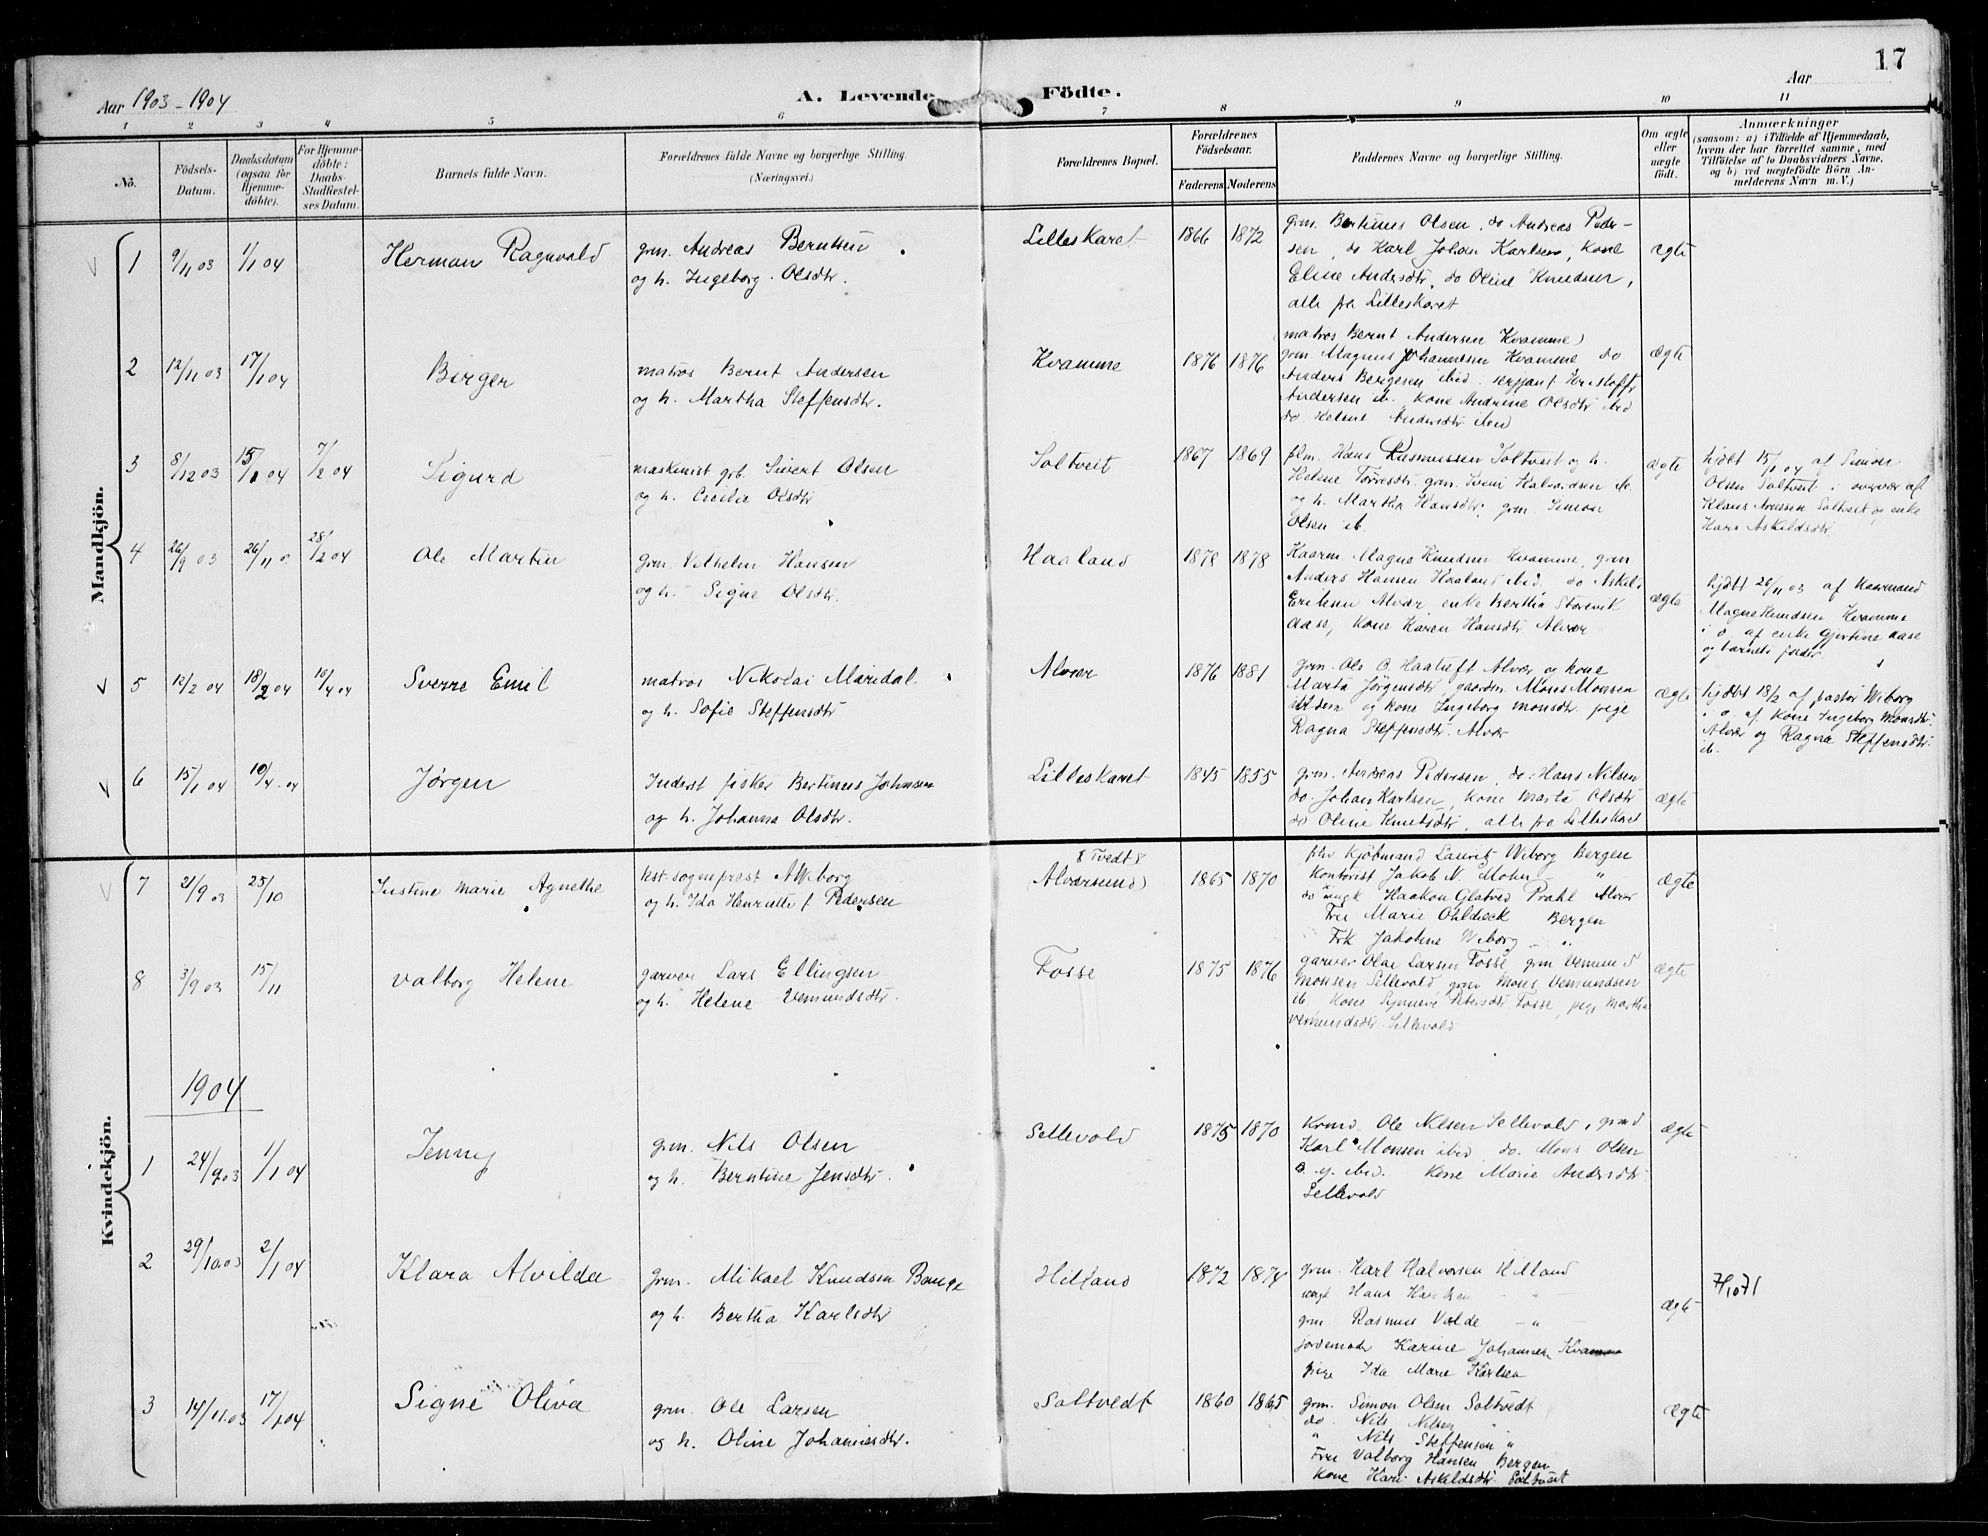 17
Aar 1903-1904
A. Levende Födte.
Aar
1 2 3 4 5 6 7 8 9 10 11
No.
Födsels-Datum.
Daabsdatum (ogsaa for Hjemme-döbte).
For Hjemme-döbte: Daabs-Stadfæstel-ses Datum.
Barnets fulde Navn.
Forældrenes fulde Navne og borgerlige Stilling.
(Næringsvei.)
Forældrenes Bopæl.
Forældrenes Födselsaar.
Faderens Moderens
Faddernes Navne og borgerlige Stilling.
Om ægte eller uægte födt.
Anmærkninger
(saasom: a) i Tilfælde af Hjemmedaab, hvem der har forrettet samme, med Tilföielse af to Daabsvidners Navne. og b) ved uægtefödte Börn An-melderens Navn m. V.)
Mandkjön.
1 9/11 03 1/1 04 Herman Ragnvald
grm. Andreas Berntsen
og h. Ingeborg Olsdtr.
Lilleskaret 1866 1872
grm. Bertinus Olsen, do Andreas Peder-
sen, do Karl Johan Karlsen, kone
Eline Andersdtr, do Oline Knudsen,
alle fra Lilleskaret
ægte
2 12/11 03 17/1 04 Birger
matros Bernt Andersen
og h. Martha Steffensdtr.
Kvamme 1876 1876
matros Bernt Andersen Kvamme
grm. Magnus Johannesen Kvamme do
Anders Bergesen ibid. serjant Kristoffr
Andersen ib. kone Andrine Olsdtr ibid
do Helene Andersdtr ibid
ægte
3 8/12 03 15/1 04 7/2 04 Sigurd
maskinist grb. Sivert Olsen
og h. Cecilie Olsdtr
Soltveit 1867 1869
plm. Hans Rasmussen Soltveit og h.
Helene Torresdtr. grm. Iveri Halvordsen ib.
og h. Martha Hansdtr, grm. Simon
Olsen ib.
ægte
hjdbt 15/1 04 af Simon
Olsen Soltveit i overvær af
Klaus Anessen Soltveit og enke
Hari Askildsdtr
4 26/9 03 26/11 0. 28/2 04 Ole Martin
grm. Vilhelm Hansen
og h. Signe Olsdtr.
Haaland 1878 1878
Kaarm. Magne Knudsen Kvamme, grm
Anders Hansen Haaland ibid. do Askild
Eriksen Alvær, enke Bertha Storevik
Aase, kone Karen Hansdtr Alvær
ægte
hjdbt 26/11 03 af Kaarmand
Magne Knudsen Kvamme
i o. af enke Gjertine Aase
og barnets fader
5 13/2 04 18/2 04 10/4 04 Sverre Emil
matros Nikolai Maridal
og h. Sofie Steffensdtr
Alvær 1876 1881
grm. Ole O. Haatuft Alvær og kone
Marta Jørgensdtr, gaardm. Mons Monsen
ibidem og kone Ingeborg Monsdtr. pige
Ragna Steffensdtr. Alvær
ægte
hjdbt 18/2 af pastor Wiborg
i o. af kone Ingeborg Monsdtr.
Alvær og Ragna Steffensdtr.
ib.
6 15/1 04 10/4 04 Jørgen
Inderst fisker Bertinus Johnsen
og h. Johanna Olsdtr.
Lilleskaret 1845 1855
grm. Andreas Pedersen, do. Hans Nilsen
do. Johan Karlsen, kone Marta Olsdtr
do Oline Knutsdtr, alle fra Lilleskaret
ægte
Kvindekjön.
7 21/9 03 25/10 Justine Marie Agnethe
kst. sogneprest A Wiborg
og h. Ida Henriette f. Pedersen
Tvedt
Alværsund 1865 1870
phv Kjøbmand Lauritz Wiborg Bergen
Kontorist Jakob N. Mohn "
do ungk Haakon Glatved Prahl Alvær
Fru Marie Ohldieck Bergen
Frk Jakobine Wiborg "
ægte
8 3/9 03 15/11 Valborg Helene
garver Lars Ellingsen
og h. Helene Vemundsdtr.
Fosse 1875 1876
garver Olai Larsen Fosse, grm Vemund
Monsen Sellevold, grm Mons Vemundsen
ib. kone Synneve Petersdtr Fosse, pige Martha
Vemundsdtr. Sellevold
ægte
1904
1 24/9 03 1/1 04 Jenny
grm. Nils Olsen
og h. Berntine Jensdtr.
Sellevold 1875 1870
Krmd. Ole Nilsen Sellevold, grmd
Karl Monsen ibid, do. Mons Olsen
ibid. Kone Marie Andersdtr
Sellevold
ægte
2 29/10 03 2/1 04 Klara Alvilda
grm. Mikael Knudsen Bauge
og h. Bertha Karlsdtr
Hilland 1872 1874
grm. Karl Halvorsen Hilland
ungk Hans Karlsen " "
grm Rasmus Valde "
jordemoder Karine Johannesen Kvamme
pige Ida Marie Karlsen
ægte
7/10 71
3 14/11.03 17/1 04 Signe Oliva
grm. Ole Larsen
og h. Oline Johannesdtr.
Soltvedt 1860 1865
grm. Simon Olsen Soltvedt
do. Nils Nilsen "
" Nils Steffensen "
Fru Valborg Hansen Bergen
kone Hari Askildsdtr Soltveit
ægte